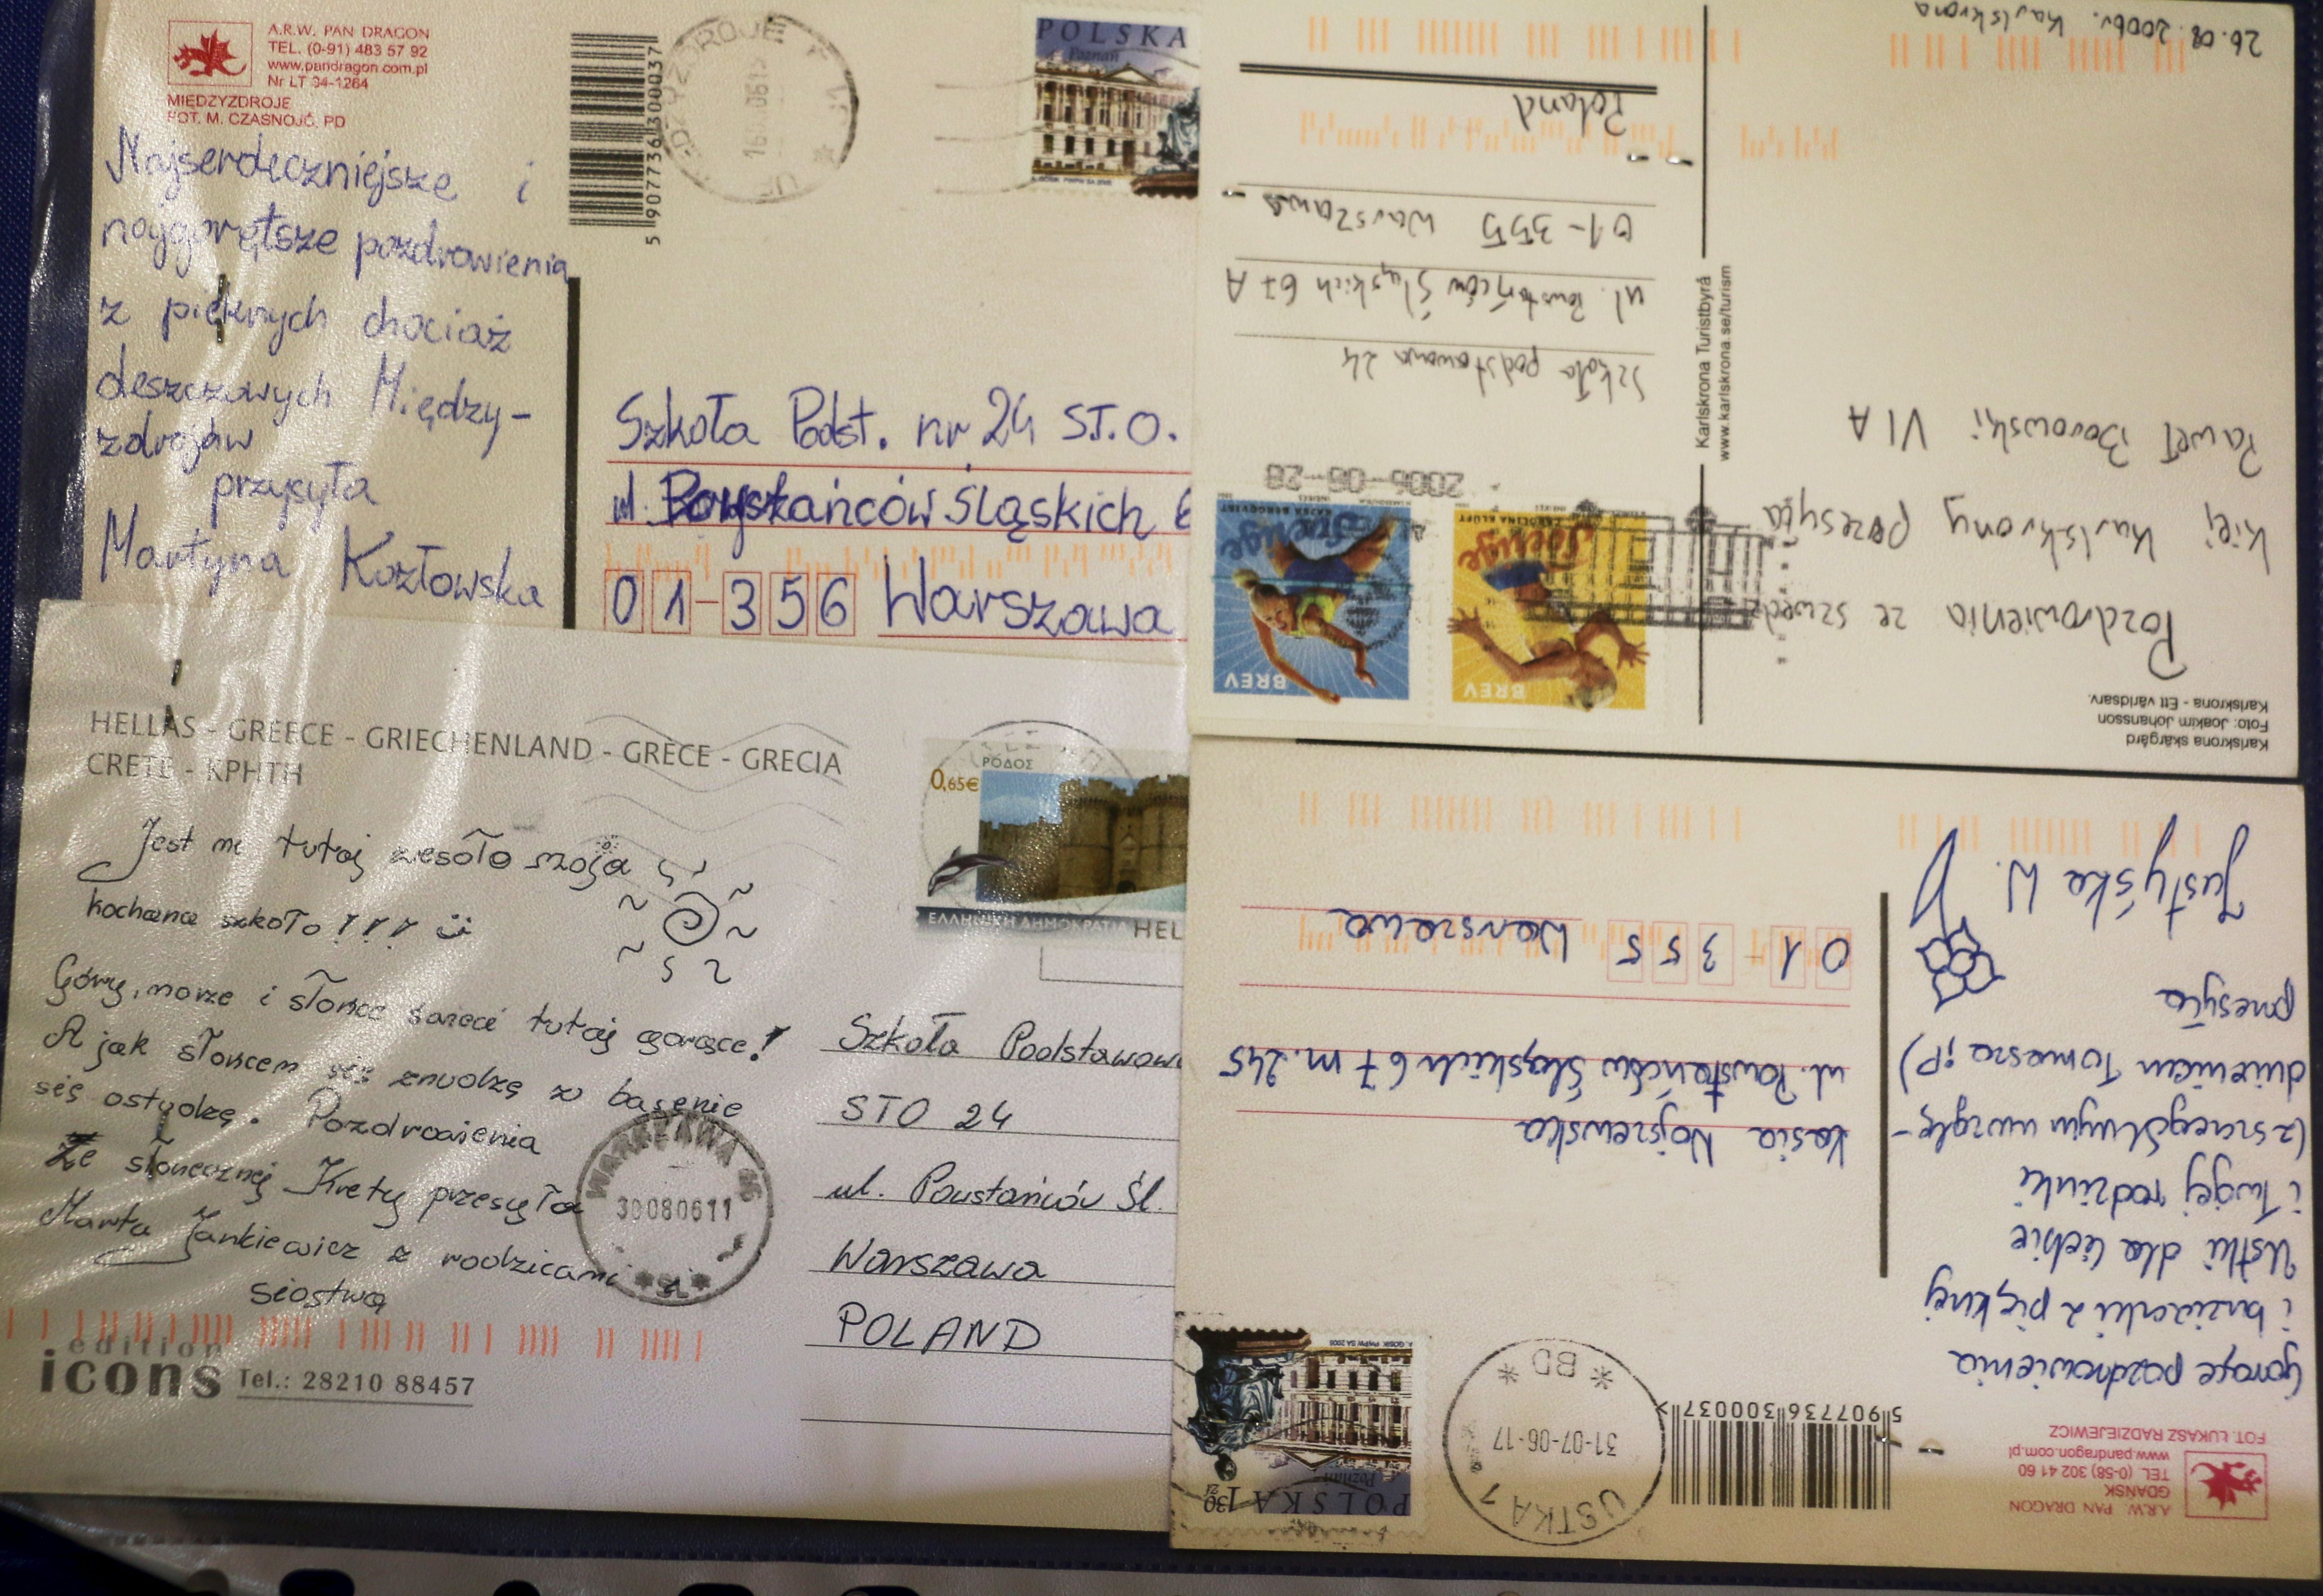 A.R.W. PAN DRAGON
TEL. (0-91) 483 57 92
www.pandragon.com.pl
Nr LT 94-1264
MIĘDZYZDROJE
FOT. M. CZASNOJĆ, PD
Najserdeczniejsze i
najgorętsze pozdrowienia
z pięknych chociaż
deszczowych Między-
zdrojów
przysyła
Martyna Kozłowska
5 907736 300037
POLSKA
Poznań
Szkoła Podst. nr 24 ST.O.
ul. Powstańców Śląskich 6
01-356 Warszawa
HELLAS - GREECE - GRIECHENLAND - GRÈCE - GRECIA
CRETE - ΚΡΗΤΗ
Jest mi tutaj wesoło moja
kochana szkoło!!!
Góry, morze i słońce świeci tutaj gorące!
A jak słońcem się znudzę w basenie
się ostudzę. Pozdrowienia
Ze słonecznej Krety przesyła
Marta Jankiewicz z rodzicami i
siostrą
edition
icons Tel.: 28210 88457
ΡΟΔΟΣ
0,65€
ΕΛΛΗΝΙΚΗ ΔΗΜΟΚΡΑΤΙΑ HEL
WARSZAWA
30080611
Szkoła Podstawow
STO 24
ul. Powstańców Śl.
Warszawa
POLAND
26.08.2006r. Karlskrona
Pozdrowienia ze szwedz
kiej Karlskrony przesyła
Paweł Borowski VI A
Karlskrona skärgård
Foto: Joakim Johansson
Karlskrona - Ett världsarv.
Karlskrona Turistbyrå
www.karlskrona.se/turism
2006-08-28
BREV
Sverige
KAJSA BERGQVIST
BREV
Sverige
CAROLINA KLÜFT
Szkoła podstawowa 24
ul. Powstańców Śląskich 67 A
01-355 Warszawa
Poland
A.R.W. PAN DRAGON
GDAŃSK
TEL. (0-58) 302 41 60
www.pandragon.com.pl
FOT. ŁUKASZ RADZIEJEWICZ
5 907736 300037 >
Gorące pozdrowienia
i buziaczki z pięknej
Ustki dla Ciebie
i Twojej rodzinki
(z szczególnym uwzglę-
dnieniem Tomasza ;P)
przesyła
Justyśka W.
USTKA 1
31-07-06-17
* BD *
POLSKA 1 30 zł
Poznań
Kasia Wojszewska
ul. Powstańców Śląskich 67 m. 245
01-355 Warszawa